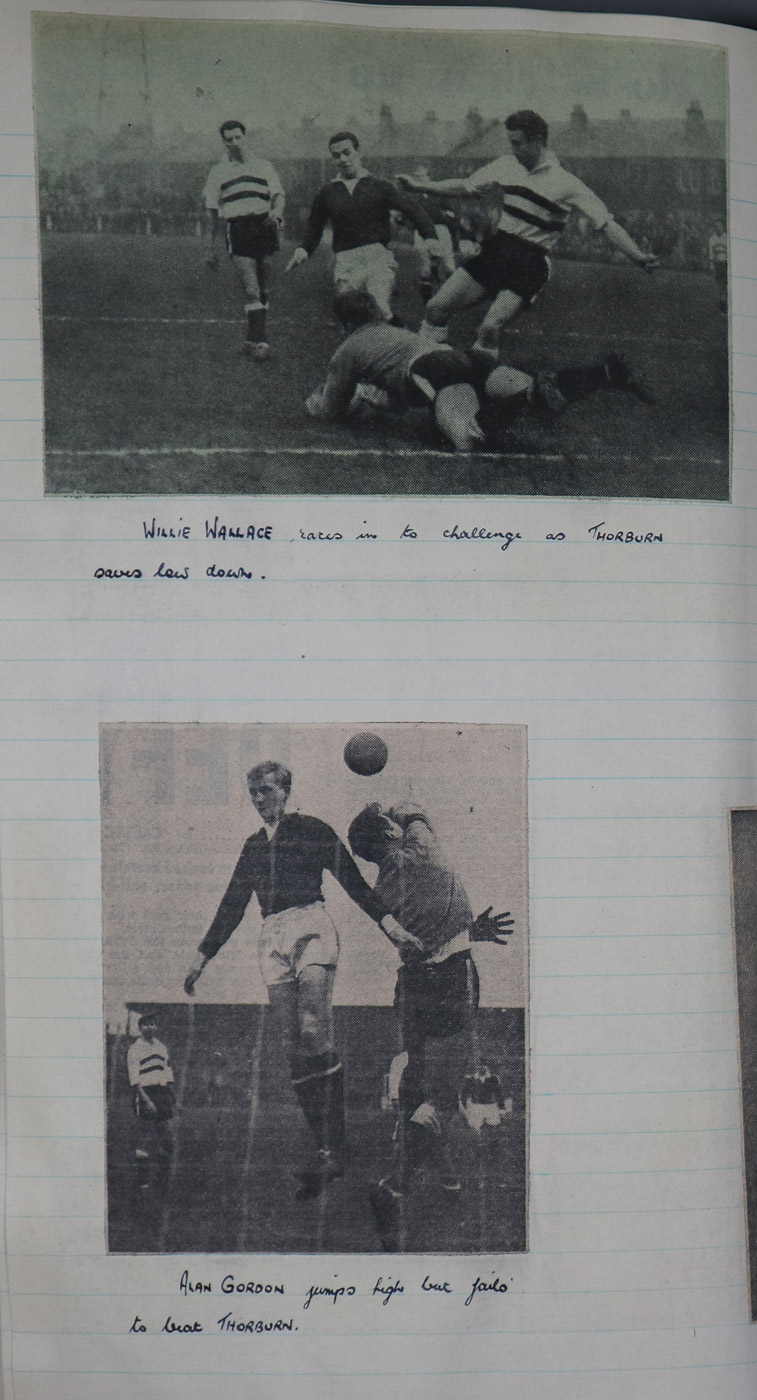 WILLIE WALLACE races in to challenge as THORBURN
saves low down.
ALAN GORDON jumps high but fails
to beat THORBURN.